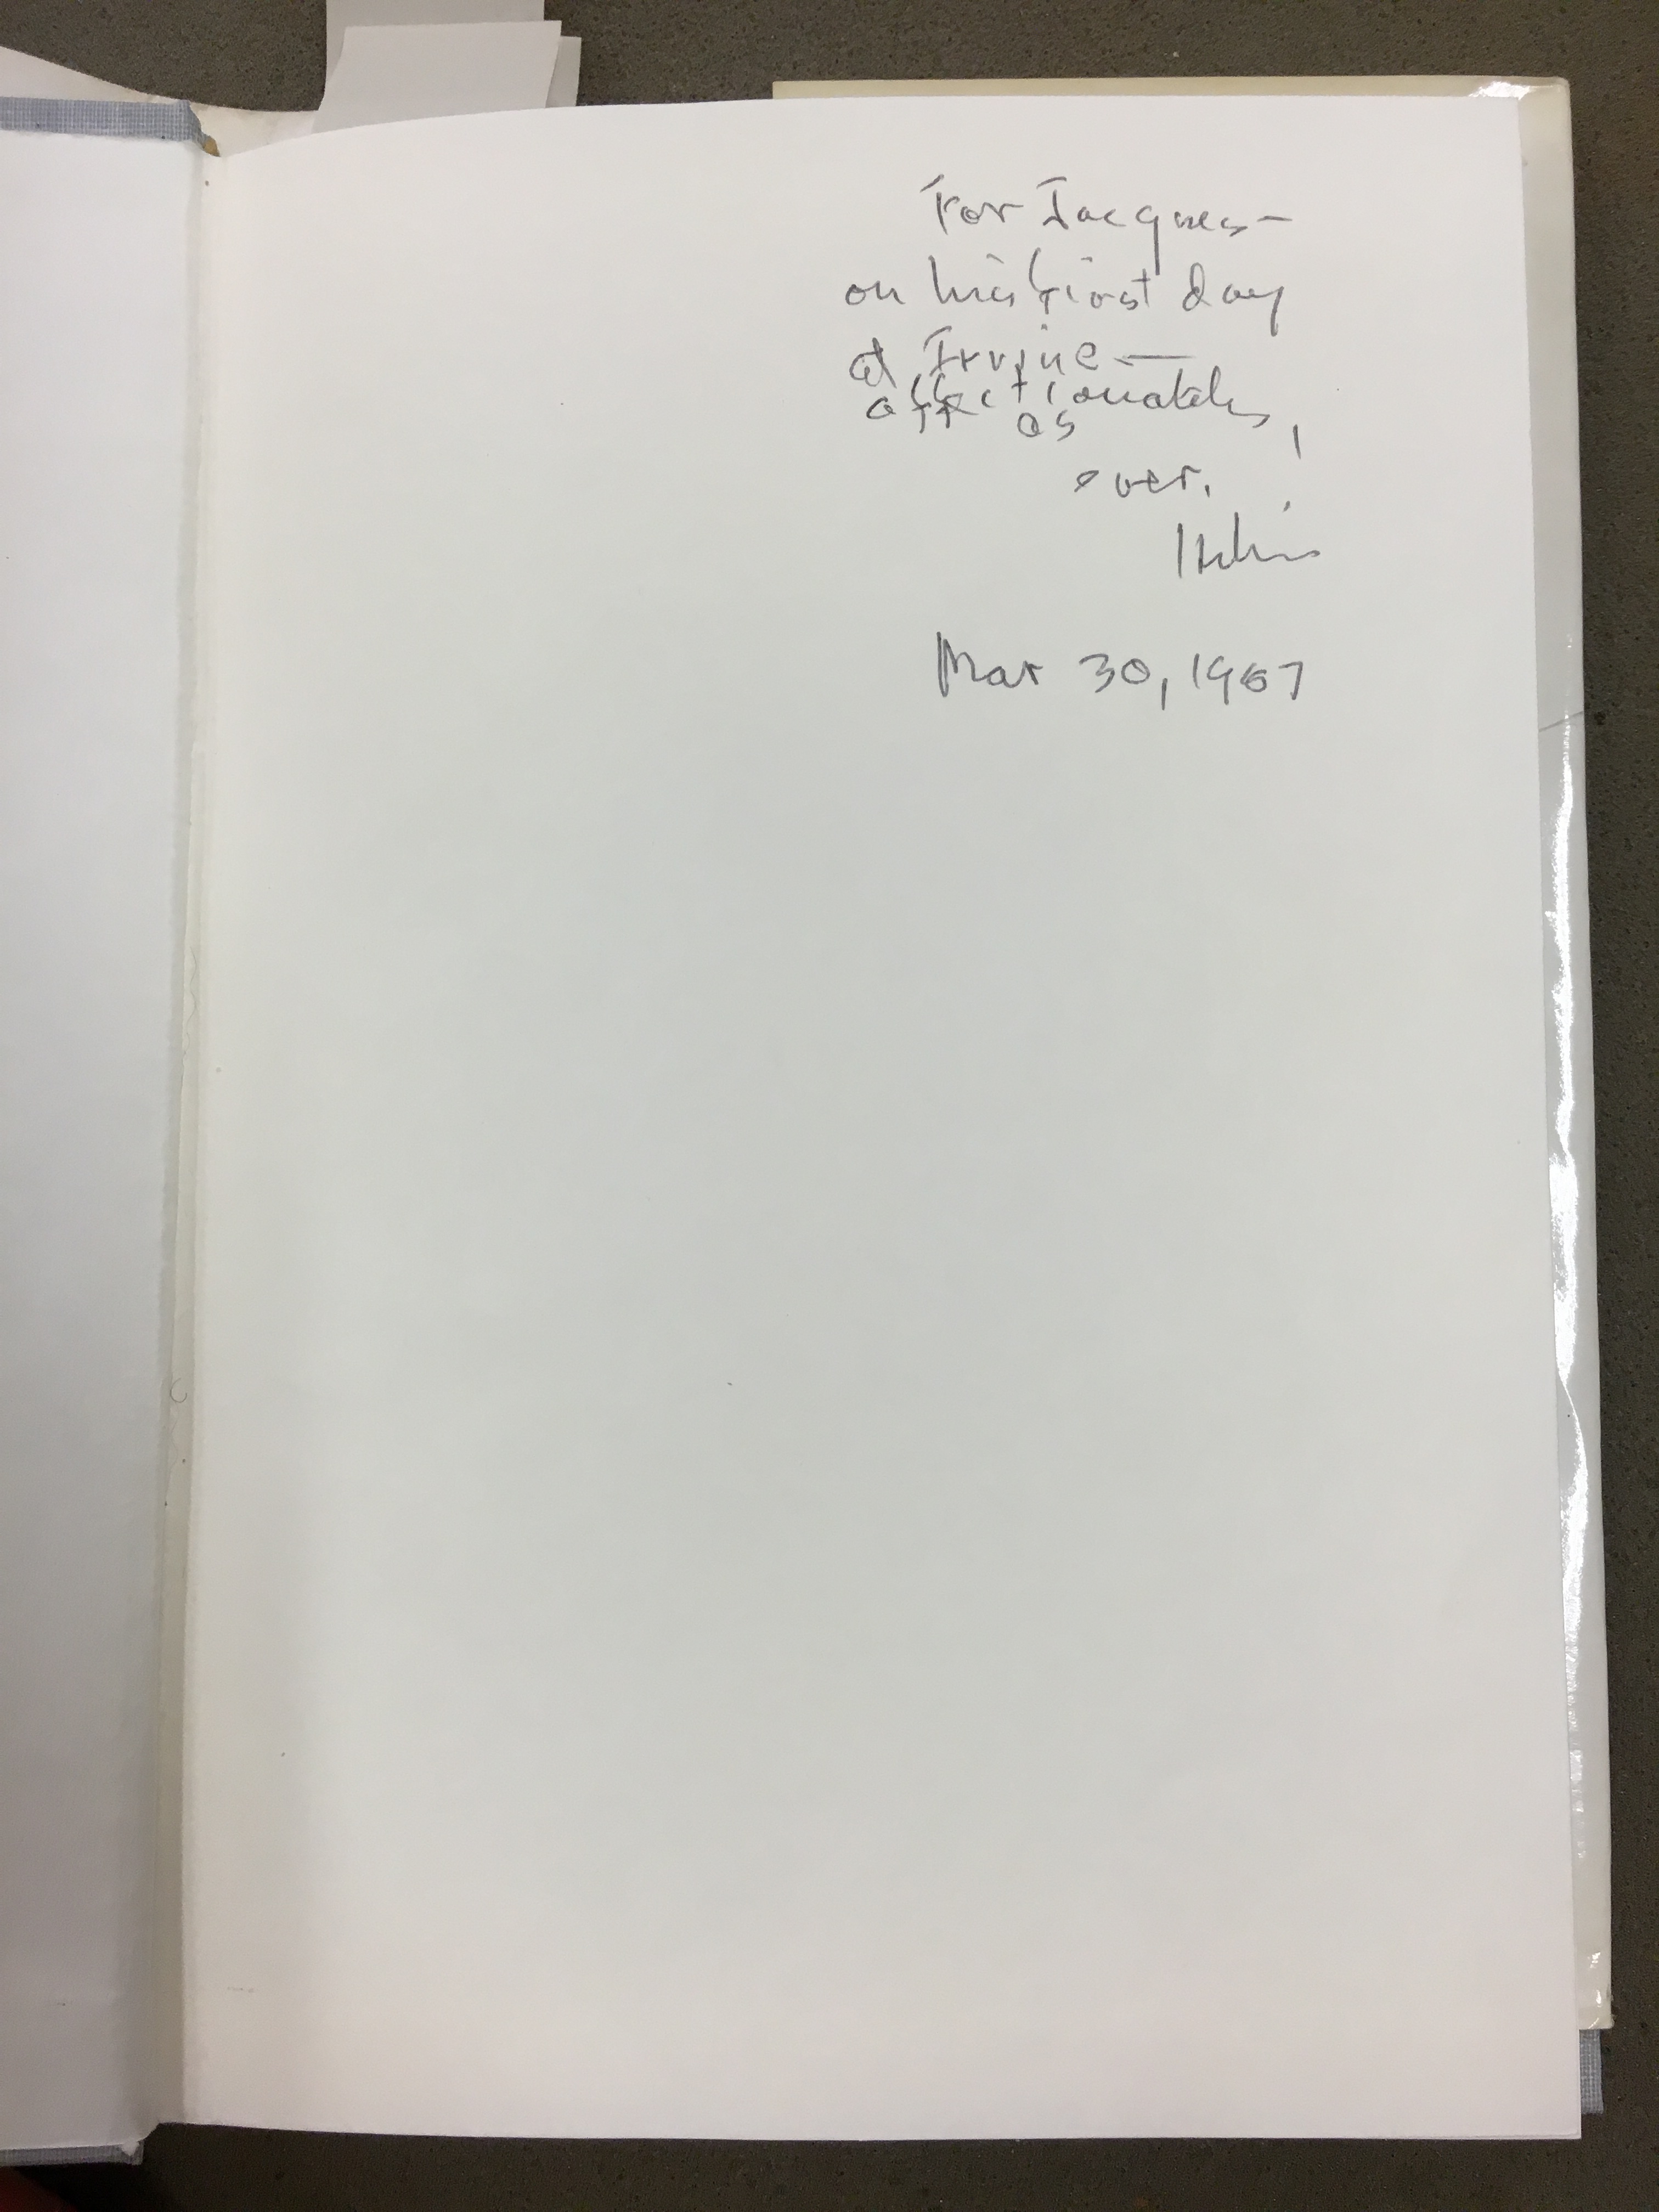 For Jacques—
on his first day
at Irvine —
affectionately,
as
ever.
Hillis
Mar 30, 1987